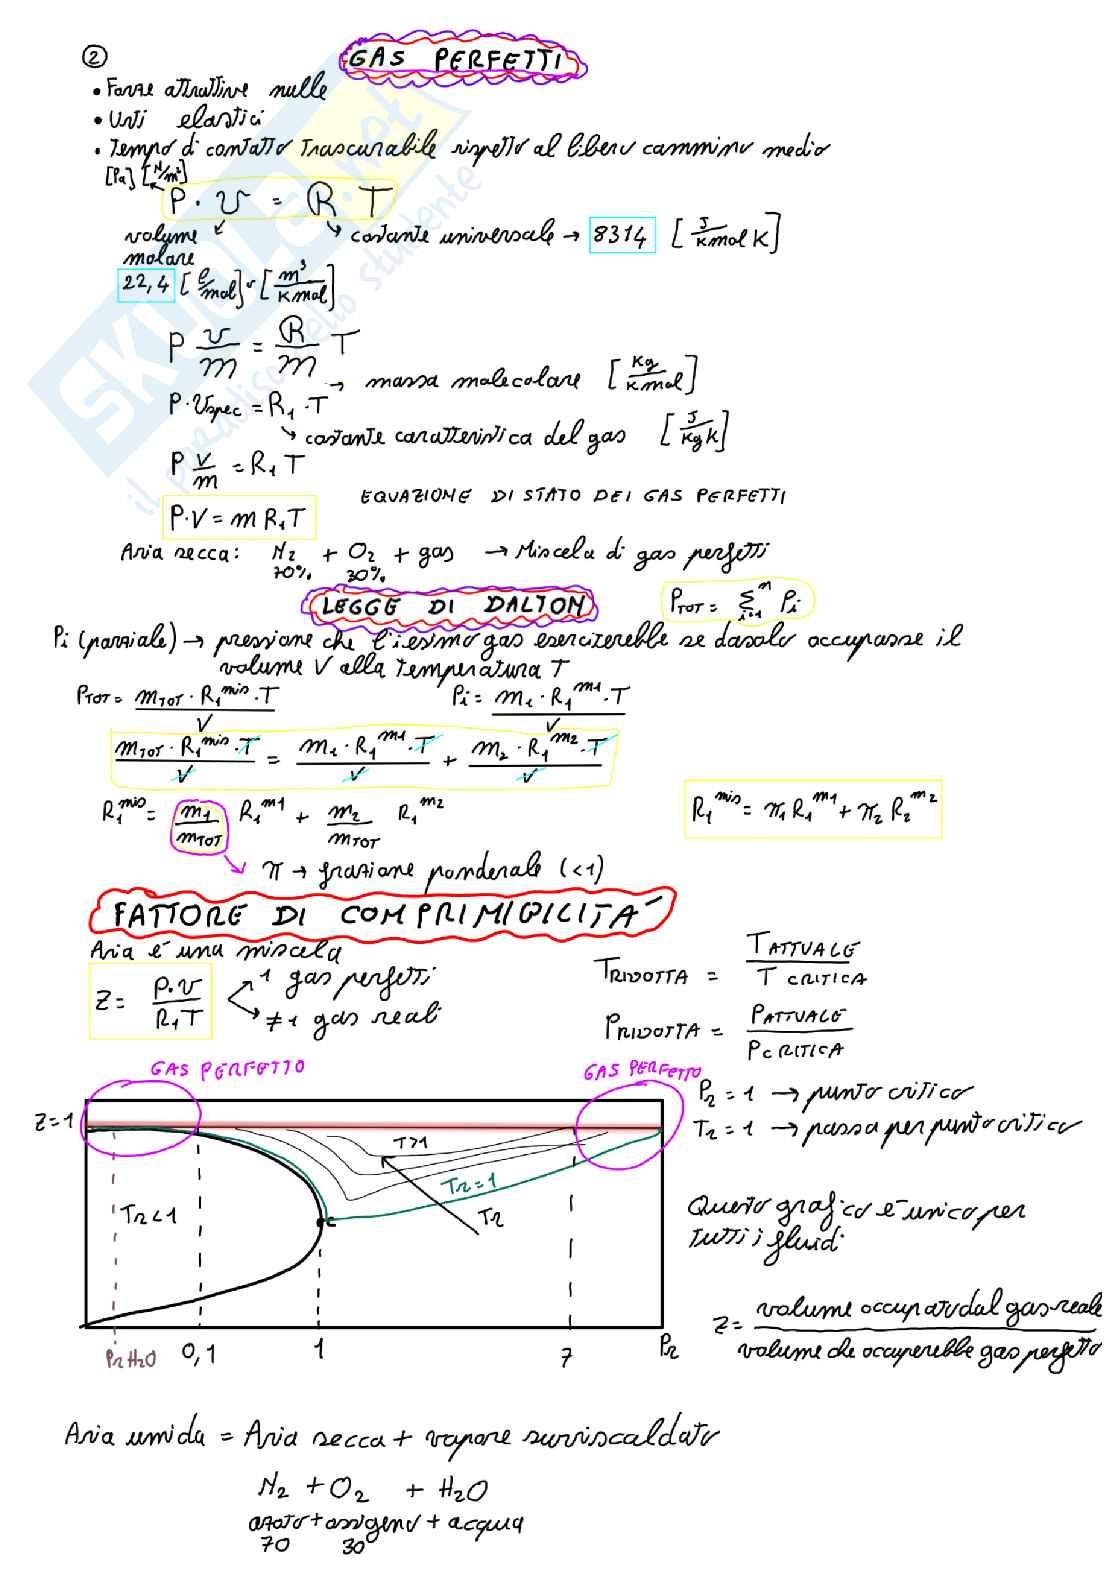 ②
GAS PERFETTI
• Forze attrattive nulle
• Urti elastici
• Tempo di contatto trascurabile rispetto al libero cammino medio
[Pa] [N/m²]
P · v = R T
volume molare
costante universale → 8314 [J/kmol K]
22,4 [l/mol] o [m³/kmol]
P v/m = R/m T
→ massa molecolare [kg/kmol]
P · Vspec = R₁ · T
→ costante caratteristica del gas [J/kg K]
P V/m = R₁ T
EQUAZIONE DI STATO DEI GAS PERFETTI
P·V = m R₁T
Aria secca: N₂ + O₂ + gas → Miscela di gas perfetti
70% 30%
LEGGE DI DALTON
PTOT = Σ Pi
i=1
n
Pi (parziale) → pressione che l'iesimo gas eserciterebbe se dasolo occupasse il
volume V alla temperatura T
PTOT = mTOT · R₁^mis · T / V
Pi = m₁ · R₁^m1 · T / V
mTOT · R₁^mis · T / V = m₁ · R₁^m1 · T / V + m₂ · R₁^m2 · T / V
R₁^mis = m₁/mTOT R₁^m1 + m₂/mTOT R₁^m2
R₁^mis = π₁ R₁^m1 + π₂ R₂^m2
π → frazione ponderale (<1)
FATTORE DI COMPRIMIBILITÀ
Aria è una miscela
Z = P·v / R₁T
1 gas perfetti
≠1 gas reali
TRIDOTTA = TATTUALE / T CRITICA
PRIDOTTA = PATTUALE / PCRITICA
GAS PERFETTO
GAS PERFETTO
Pr = 1 → punto critico
Tr = 1 → passa per punto critico
Z=1
T>1
Tr=1
Tr<1
C
Tr
Questo grafico è unico per
tutti i fluidi
Z = volume occupato dal gas reale / volume che occuperebbe gas perfetto
Pr H₂O
0,1
1
7
Pr
Aria umida = Aria secca + vapore surriscaldato
N₂ + O₂ + H₂O
azoto + ossigeno + acqua
70 30
SKUOLA.net
il paradiso dello studente